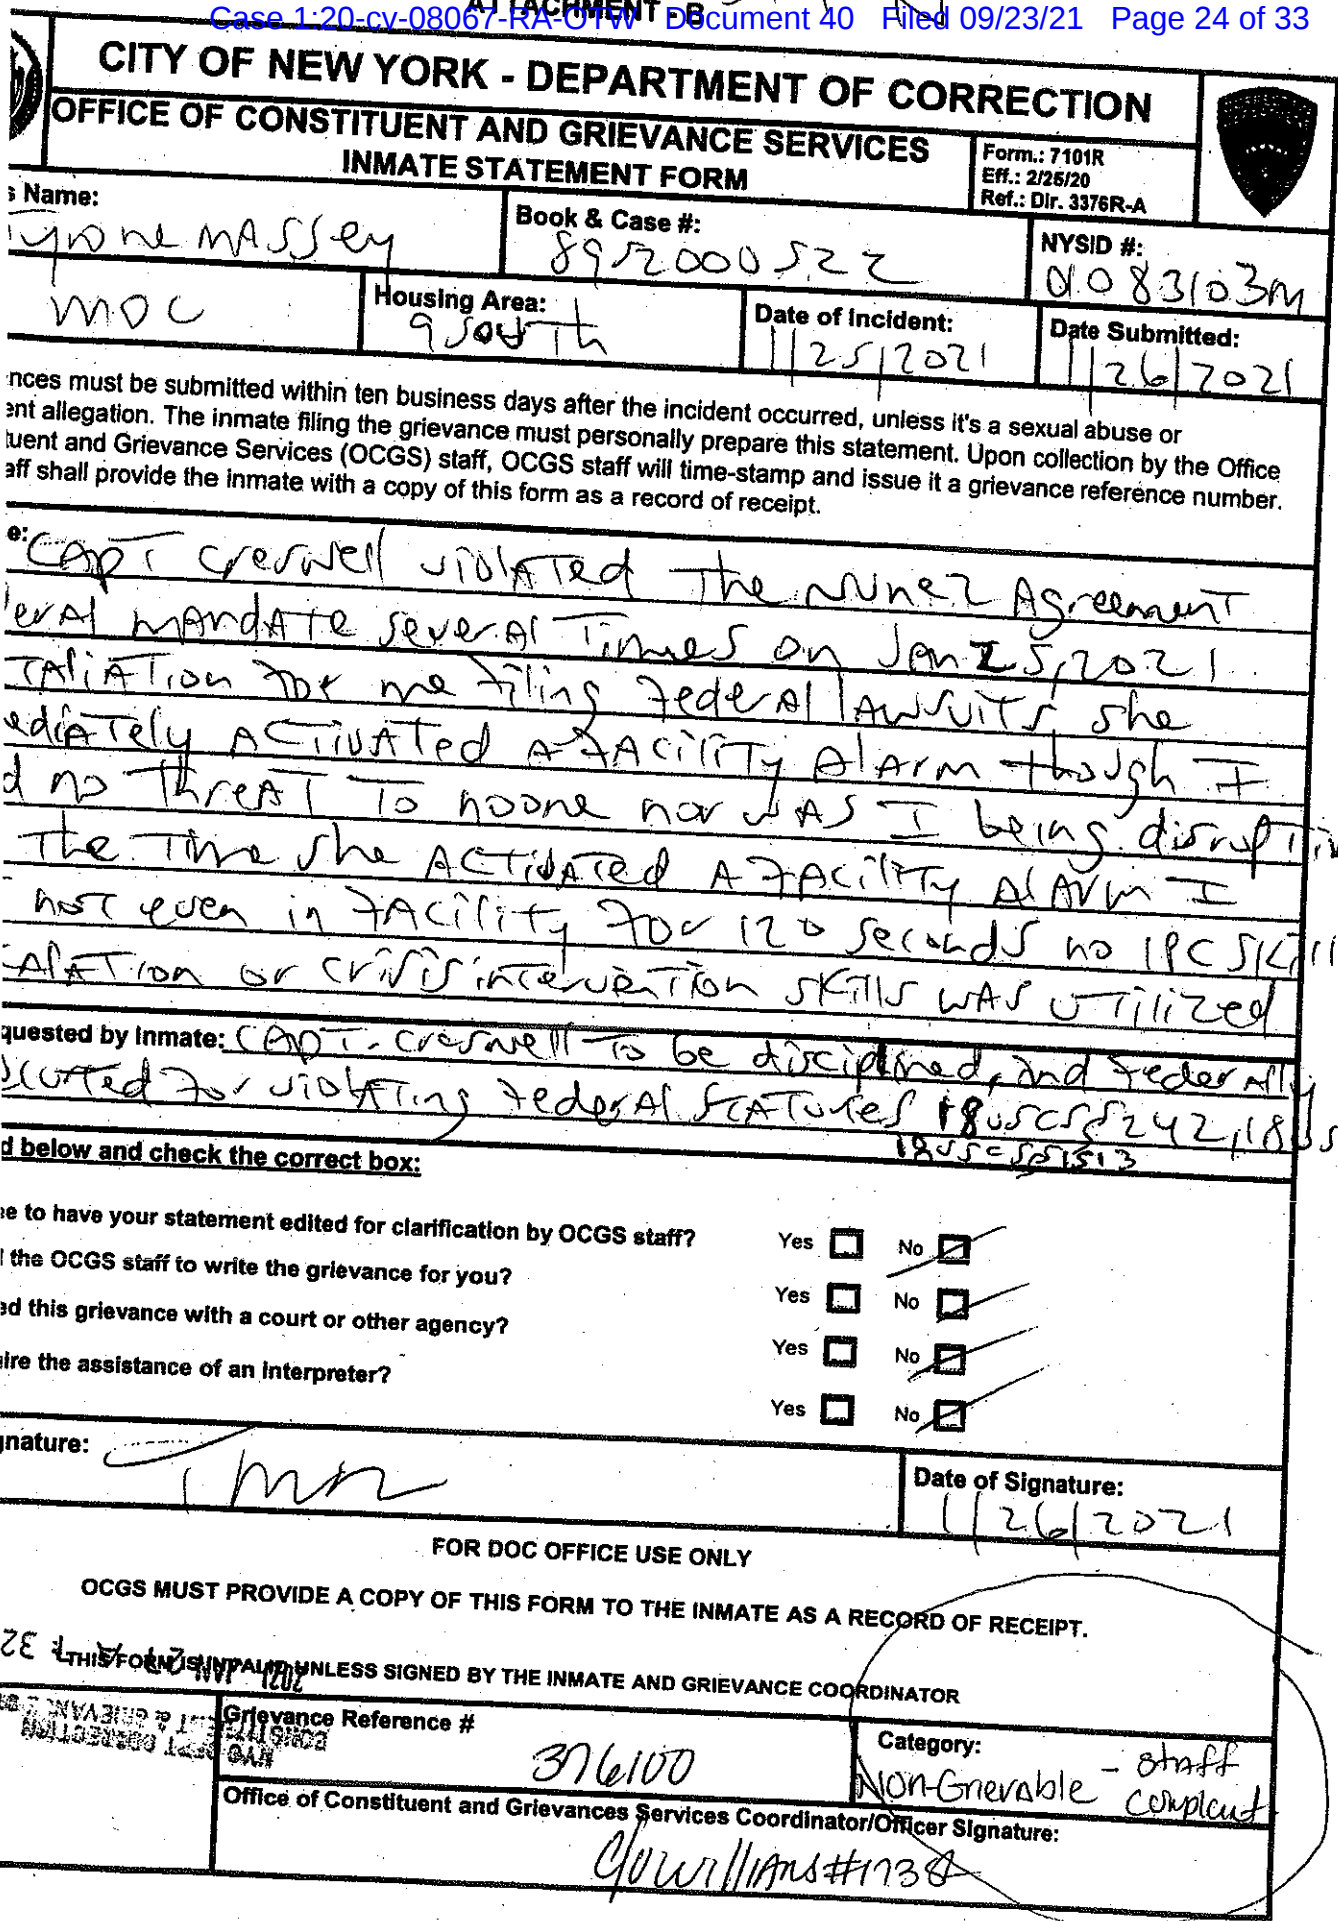 ATTACHMENT - B
Case 1:20-cv-08067-RA-OTW Document 40 Filed 09/23/21 Page 24 of 33
CITY OF NEW YORK - DEPARTMENT OF CORRECTION
OFFICE OF CONSTITUENT AND GRIEVANCE SERVICES
INMATE STATEMENT FORM
Form.: 7101R
Eff.: 2/25/20
Ref.: Dir. 3376R-A
s Name:
Tyrone MASSey
Book & Case #:
8952000522
NYSID #:
01083103M
MDC
Housing Area:
9 South
Date of Incident:
1/25/2021
Date Submitted:
1/26/2021
nces must be submitted within ten business days after the incident occurred, unless it's a sexual abuse or
ent allegation. The inmate filing the grievance must personally prepare this statement. Upon collection by the Office
tuent and Grievance Services (OCGS) staff, OCGS staff will time-stamp and issue it a grievance reference number.
aff shall provide the inmate with a copy of this form as a record of receipt.
e: CAPT Creswell violATed The NuNez Agreement
erAl mAndATe severAl Times on Jan 25, 2021
TAliATion for me filing federAl lAwsuiTs she
ediATely ACTivATed A fAciliTy AlArm though I
d no ThreAT To noone nor wAS I being disruptiv
The Time she ACTivATed A fAciliTy AlArm I
not even in fAciliTy for 120 seconds no IPC Skill
CAlATion or crisis inTervenTion skills wAs uTilized
quested by Inmate: CAPT. Creswell To be disciplined, and federAlly
cuTed for violATing federAl STATutes 18uscss242, 18us
18uscss1513
d below and check the correct box:
ee to have your statement edited for clarification by OCGS staff? Yes No
the OCGS staff to write the grievance for you? Yes No
ed this grievance with a court or other agency? Yes No
uire the assistance of an interpreter? Yes No
gnature:
Date of Signature:
1/26/2021
FOR DOC OFFICE USE ONLY
OCGS MUST PROVIDE A COPY OF THIS FORM TO THE INMATE AS A RECORD OF RECEIPT.
THIS FORM IS INVALID UNLESS SIGNED BY THE INMATE AND GRIEVANCE COORDINATOR
Grievance Reference #
376100
Category:
Non-Grievable - staff
complaint
Office of Constituent and Grievances Services Coordinator/Officer Signature: